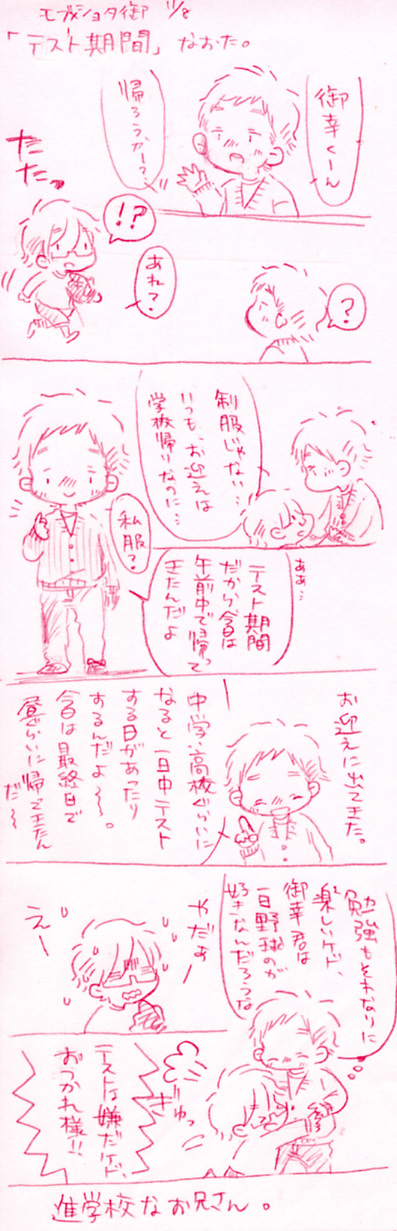 モブ×ショタ御 11/8
「テスト期間」なおた。
御幸くーん
帰ろうかー？
たたっ
!?
あれ？
？
制服じゃない…
いつも、お迎えは
学校帰りなのに…
私服？
ああ…
テスト期間
だから今日は
午前中で帰って
きたんだよ
お迎えに出てきた。
中学、高校ぐらいに
なると一日中テスト
する日があったり
するんだよ〜〜。
今日は最終日で
昼ぐらいに帰ってきたん
だ〜
勉強もそれなりに
楽しいケド、
御幸君は
一日野球のが
好きなんだろうな
やだぁ
えー
ぎゅっ
テストは嫌だけド、
おつかれ様!!
進学校なお兄さん。